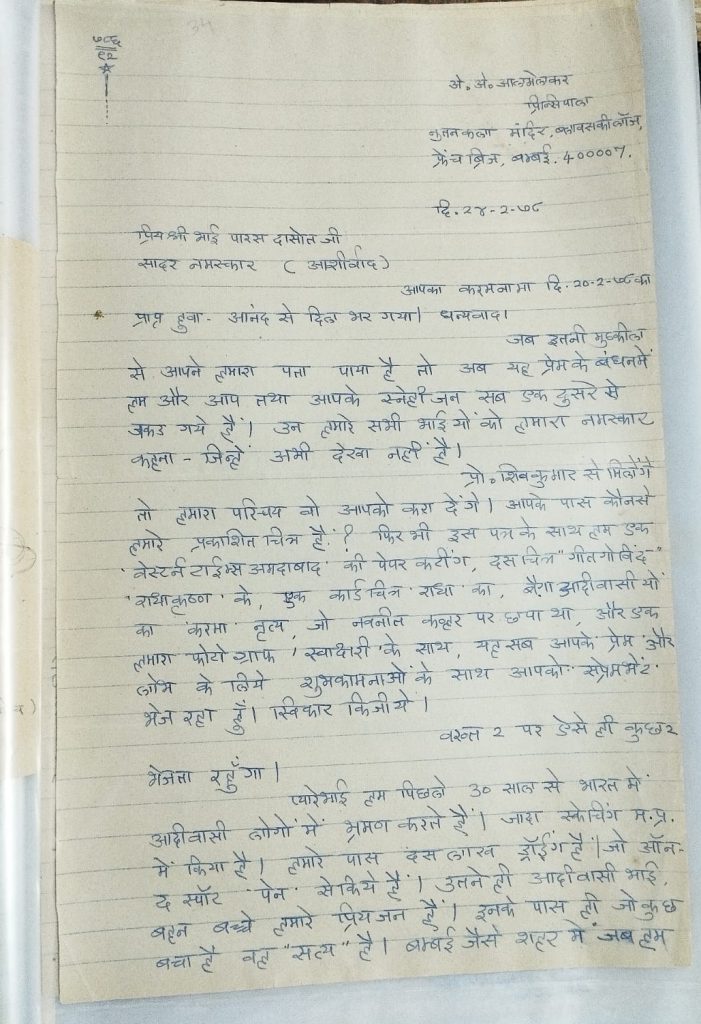 34
७८६
९२
अे. अे. आलमेलकर
प्रिन्सिपाल
नुतन कला मंदिर, ब्लावसकी लॉज,
फ्रेंच ब्रिज, बम्बई. 400007.
दि. २४-2-७८
प्रिय श्री भाई पारस दासोत जी
सादर नमस्कार ( आशीर्वाद )
आपका करमनामा दि. २०-2-७८ का
प्राप्त हुवा - आनंद से दिल भर गया। धन्यवाद।
जब इतनी मुष्कील
से आपने हमारा पत्ता पाया है तो अब यह प्रेम के बंधनमें
हम और आप तथा आपके स्नेही जन सब एक दुसरे से
जकड गये हैं। उन हमारे सभी भाईयों को हमारा नमस्कार
कहना - जिन्हे अभी देखा नहीं है।
प्रो. शिवकुमार से मिलोंगे
तो हमारा परिचय वो आपको करा देंगे। आपके पास कौनसे
हमारे प्रकाशित चित्र हैं ? फिर भी इस पत्र के साथ हम एक
'वेस्टर्न टाईम्स अमदाबाद' की पेपर कटींग, दस चित्र "गीत गोविंद"
'राधाकृष्ण' के, एक कार्ड चित्र राधा का, बैगा आदीवासी यों
का करमा नृत्य, जो नवनीत कव्हर पर छपा था, और एक
हमारा फोटो ग्राफ 'स्वाक्षरी' के साथ, यह सब आपके प्रेम और
लोभ के लिये शुभकामनाओं के साथ आपको सप्रेम भेंट
भेज रहा हूँ। स्विकार किजीये।
वख्त 2 पर ऐसे ही कुछ 2
भेजता रहुँगा।
प्यारे भाई हम पिछले ३० साल से भारत में
आदीवासी लोगों में भ्रमण करते हैं। जादा स्केचिंग म. प्र.
में किया है। हमारे पास दस लाख ड्रॉईंग है। जो ऑन-
द स्पॉट पेन से किये हैं। उतने ही आदीवासी भाई,
बहन बच्चे हमारे प्रिय जन हैं। इनके पास ही जो कुछ
बचा है वह "सत्य" है। बम्बई जैसे शहर में जब हम